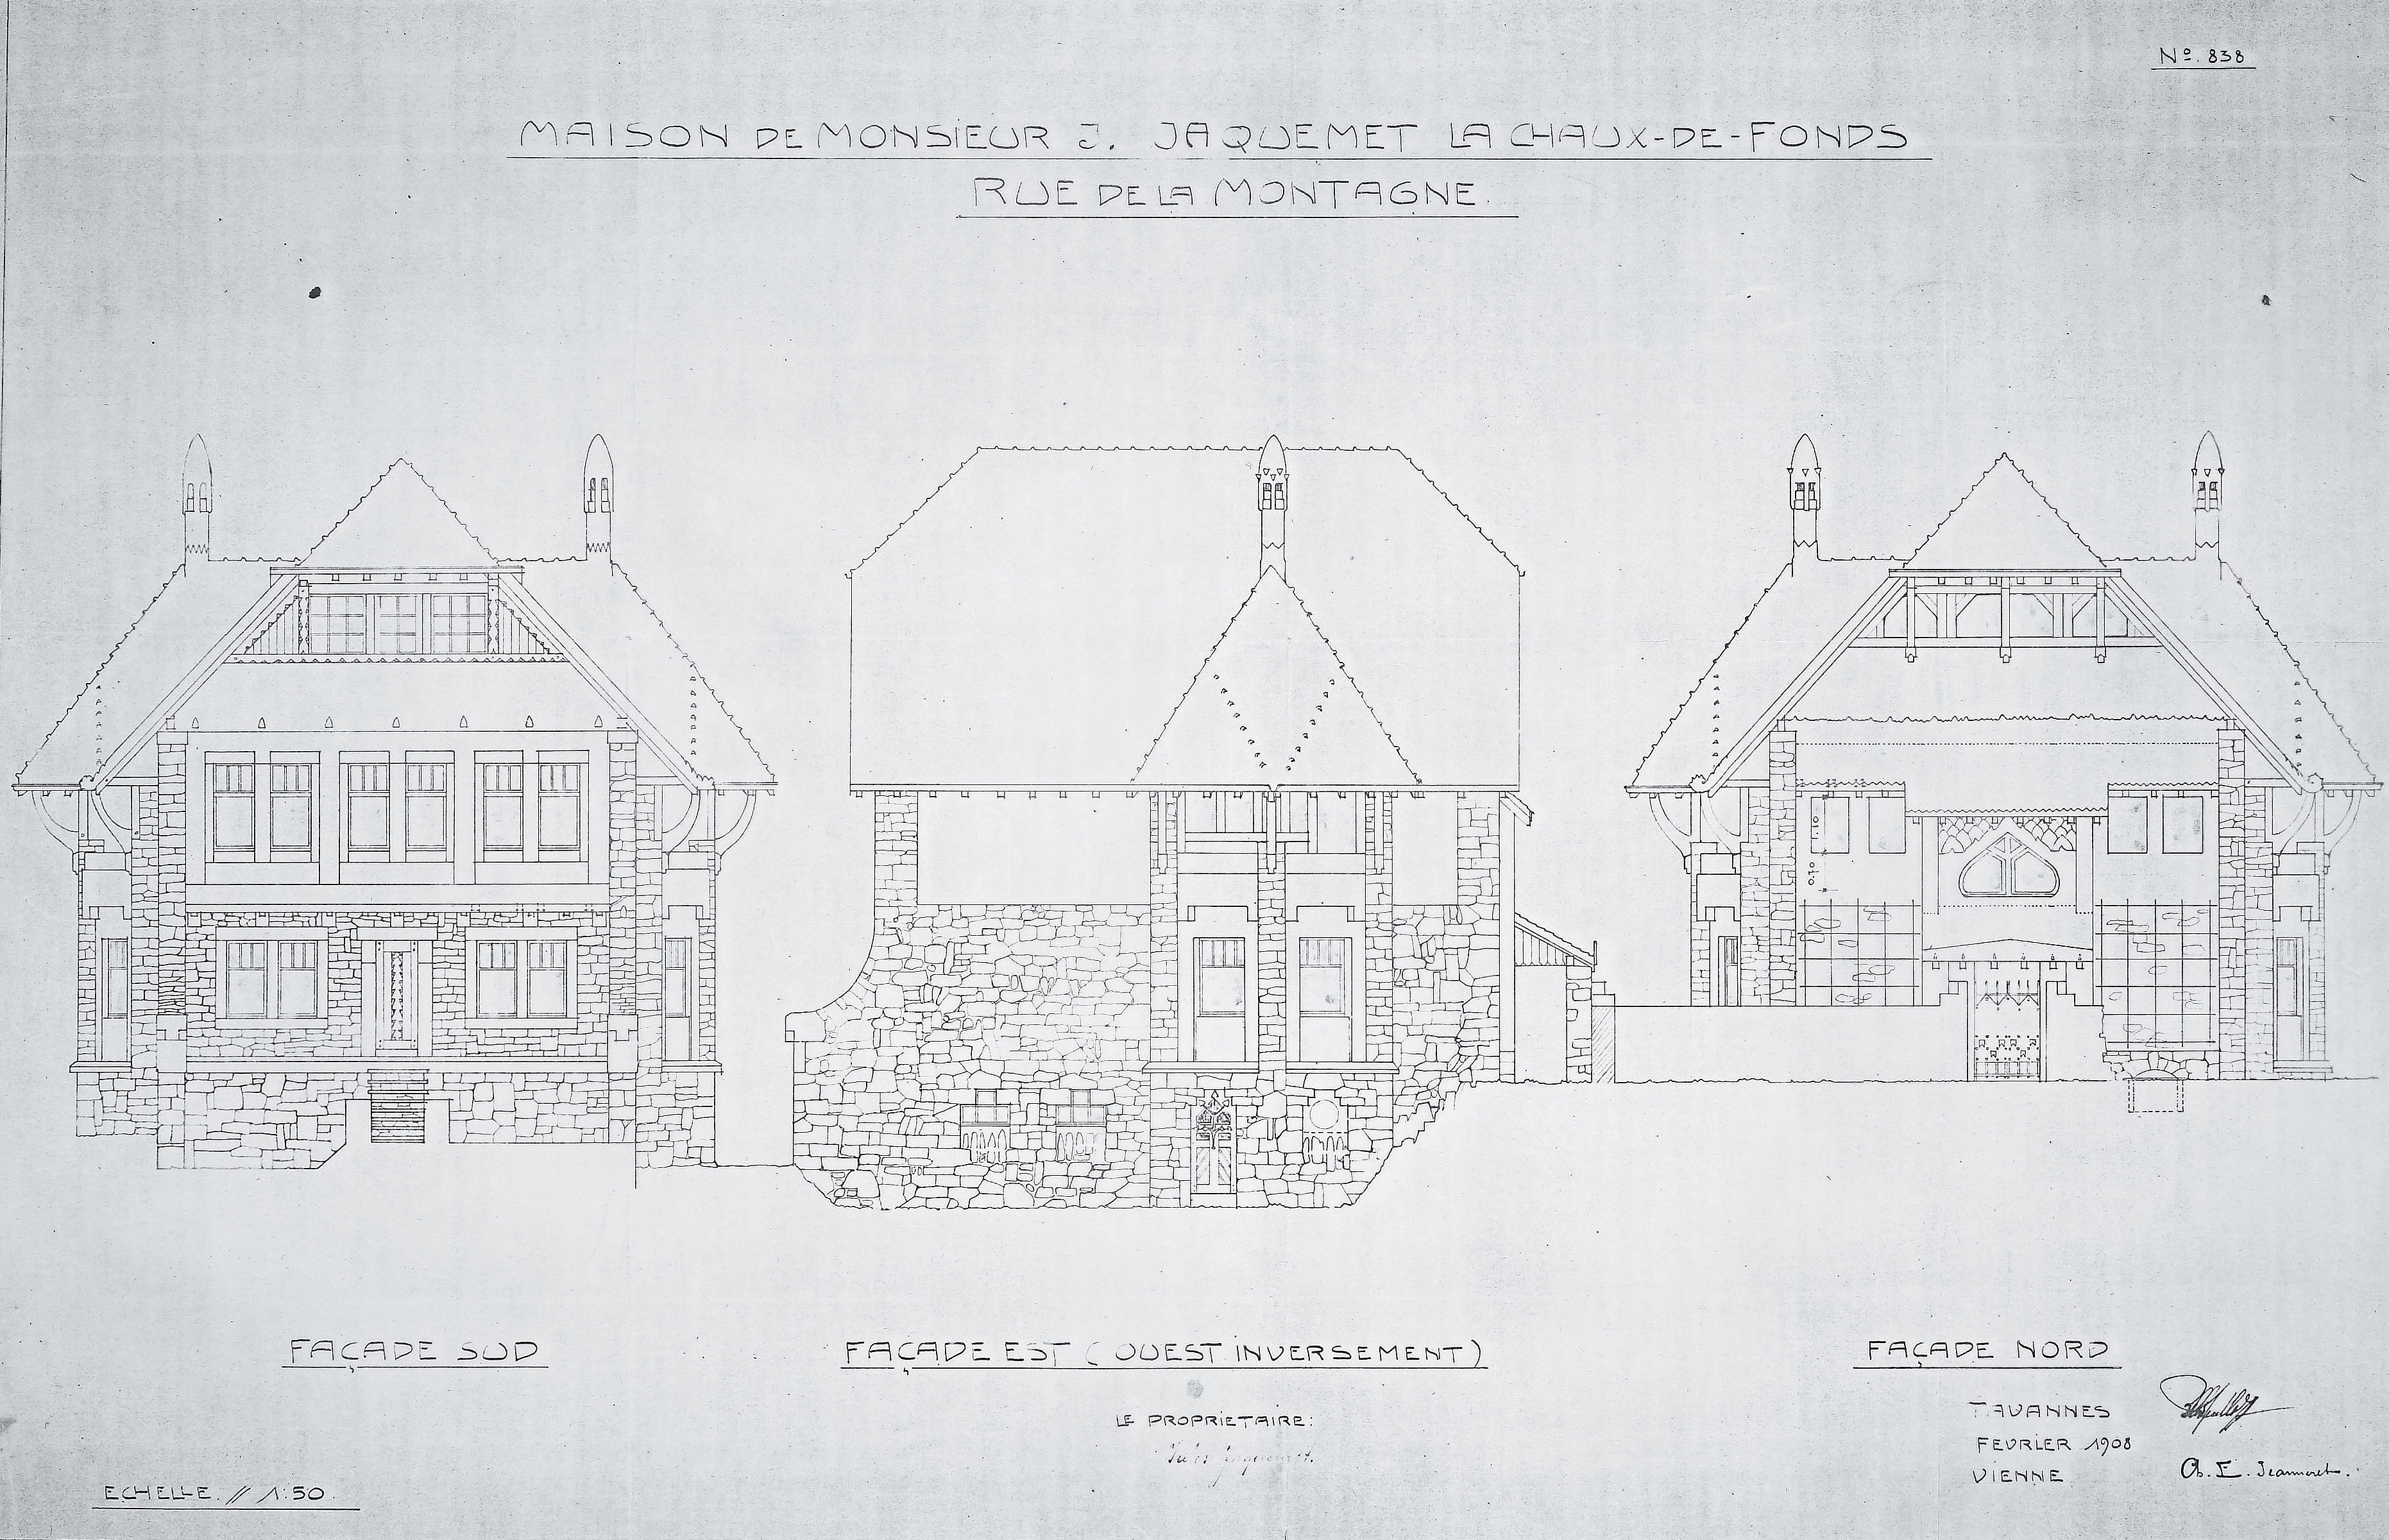 Nº. 838
MAISON DE MONSIEUR J. JAQUEMET LA CHAUX-DE-FONDS
RUE DE LA MONTAGNE.
1.10
0.70
FAÇADE SUD
FAÇADE EST (OUEST INVERSEMENT)
FAÇADE NORD
LE PROPRIETAIRE:
Jules Jaquemet.
TAVANNES
FEVRIER 1908
VIENNE
Ch. E. Jeanneret.
ECHELLE // 1:50